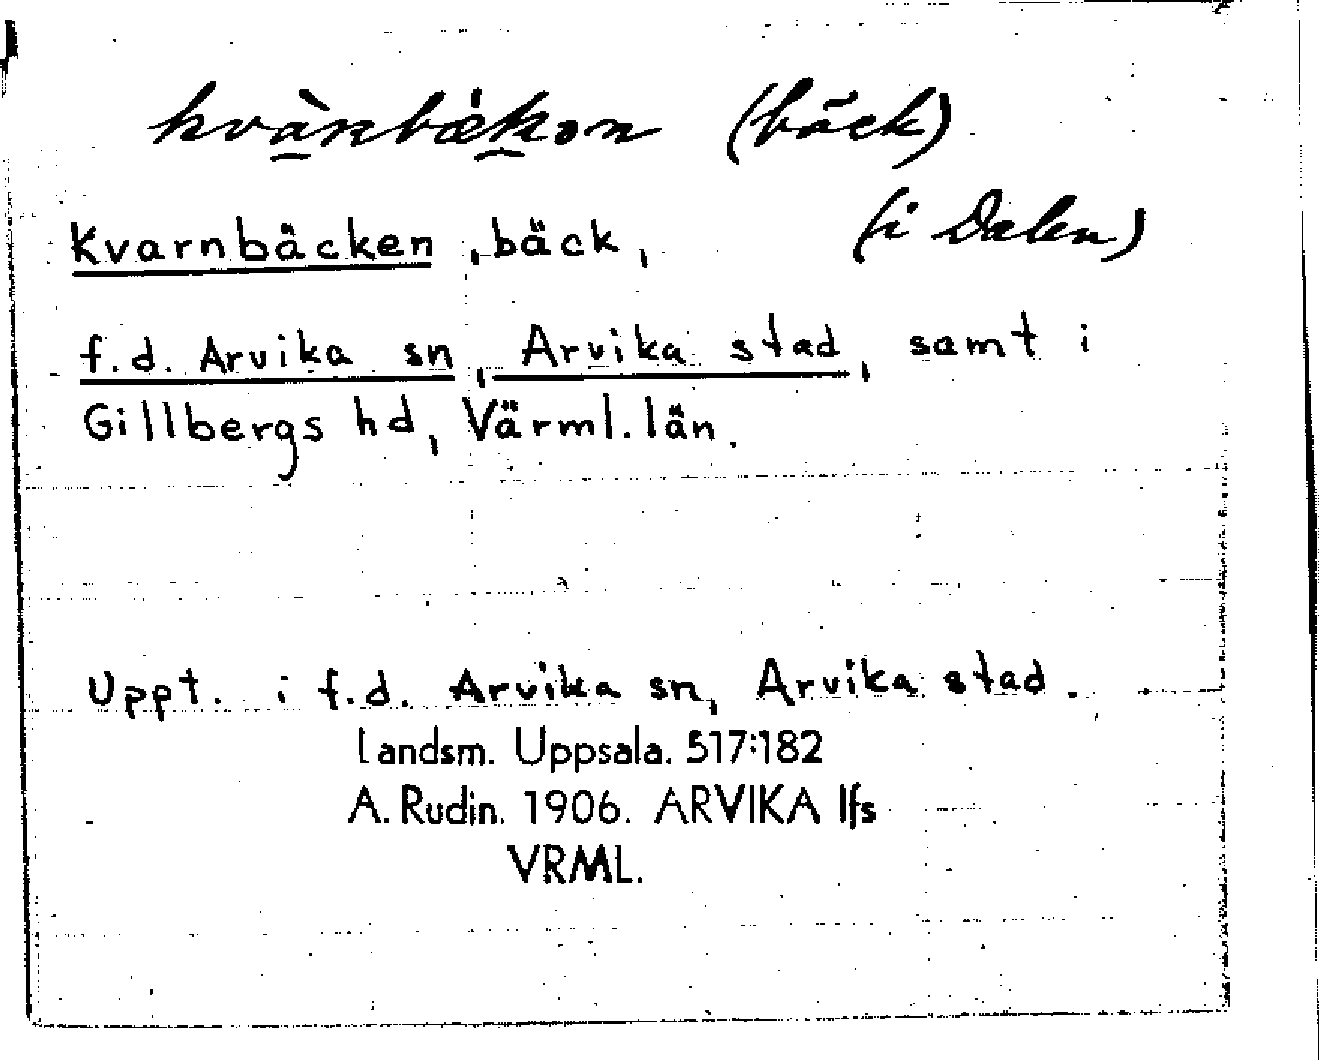 kvàrnbækon (bäck)
(i Dalen)
Kvarnbäcken, bäck,
f.d. Arvika sn, Arvika stad, samt i
Gillbergs hd, Värml. län.
Uppt. i f.d. Arvika sn, Arvika stad.
Landsm. Uppsala. 517:182
A. Rudin. 1906. ARVIKA lfs
VRML.